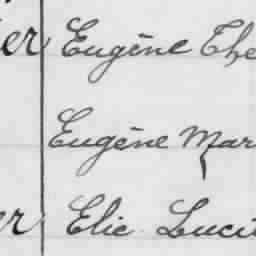 er Eugène The
Eugène Mar
er Elie Luci